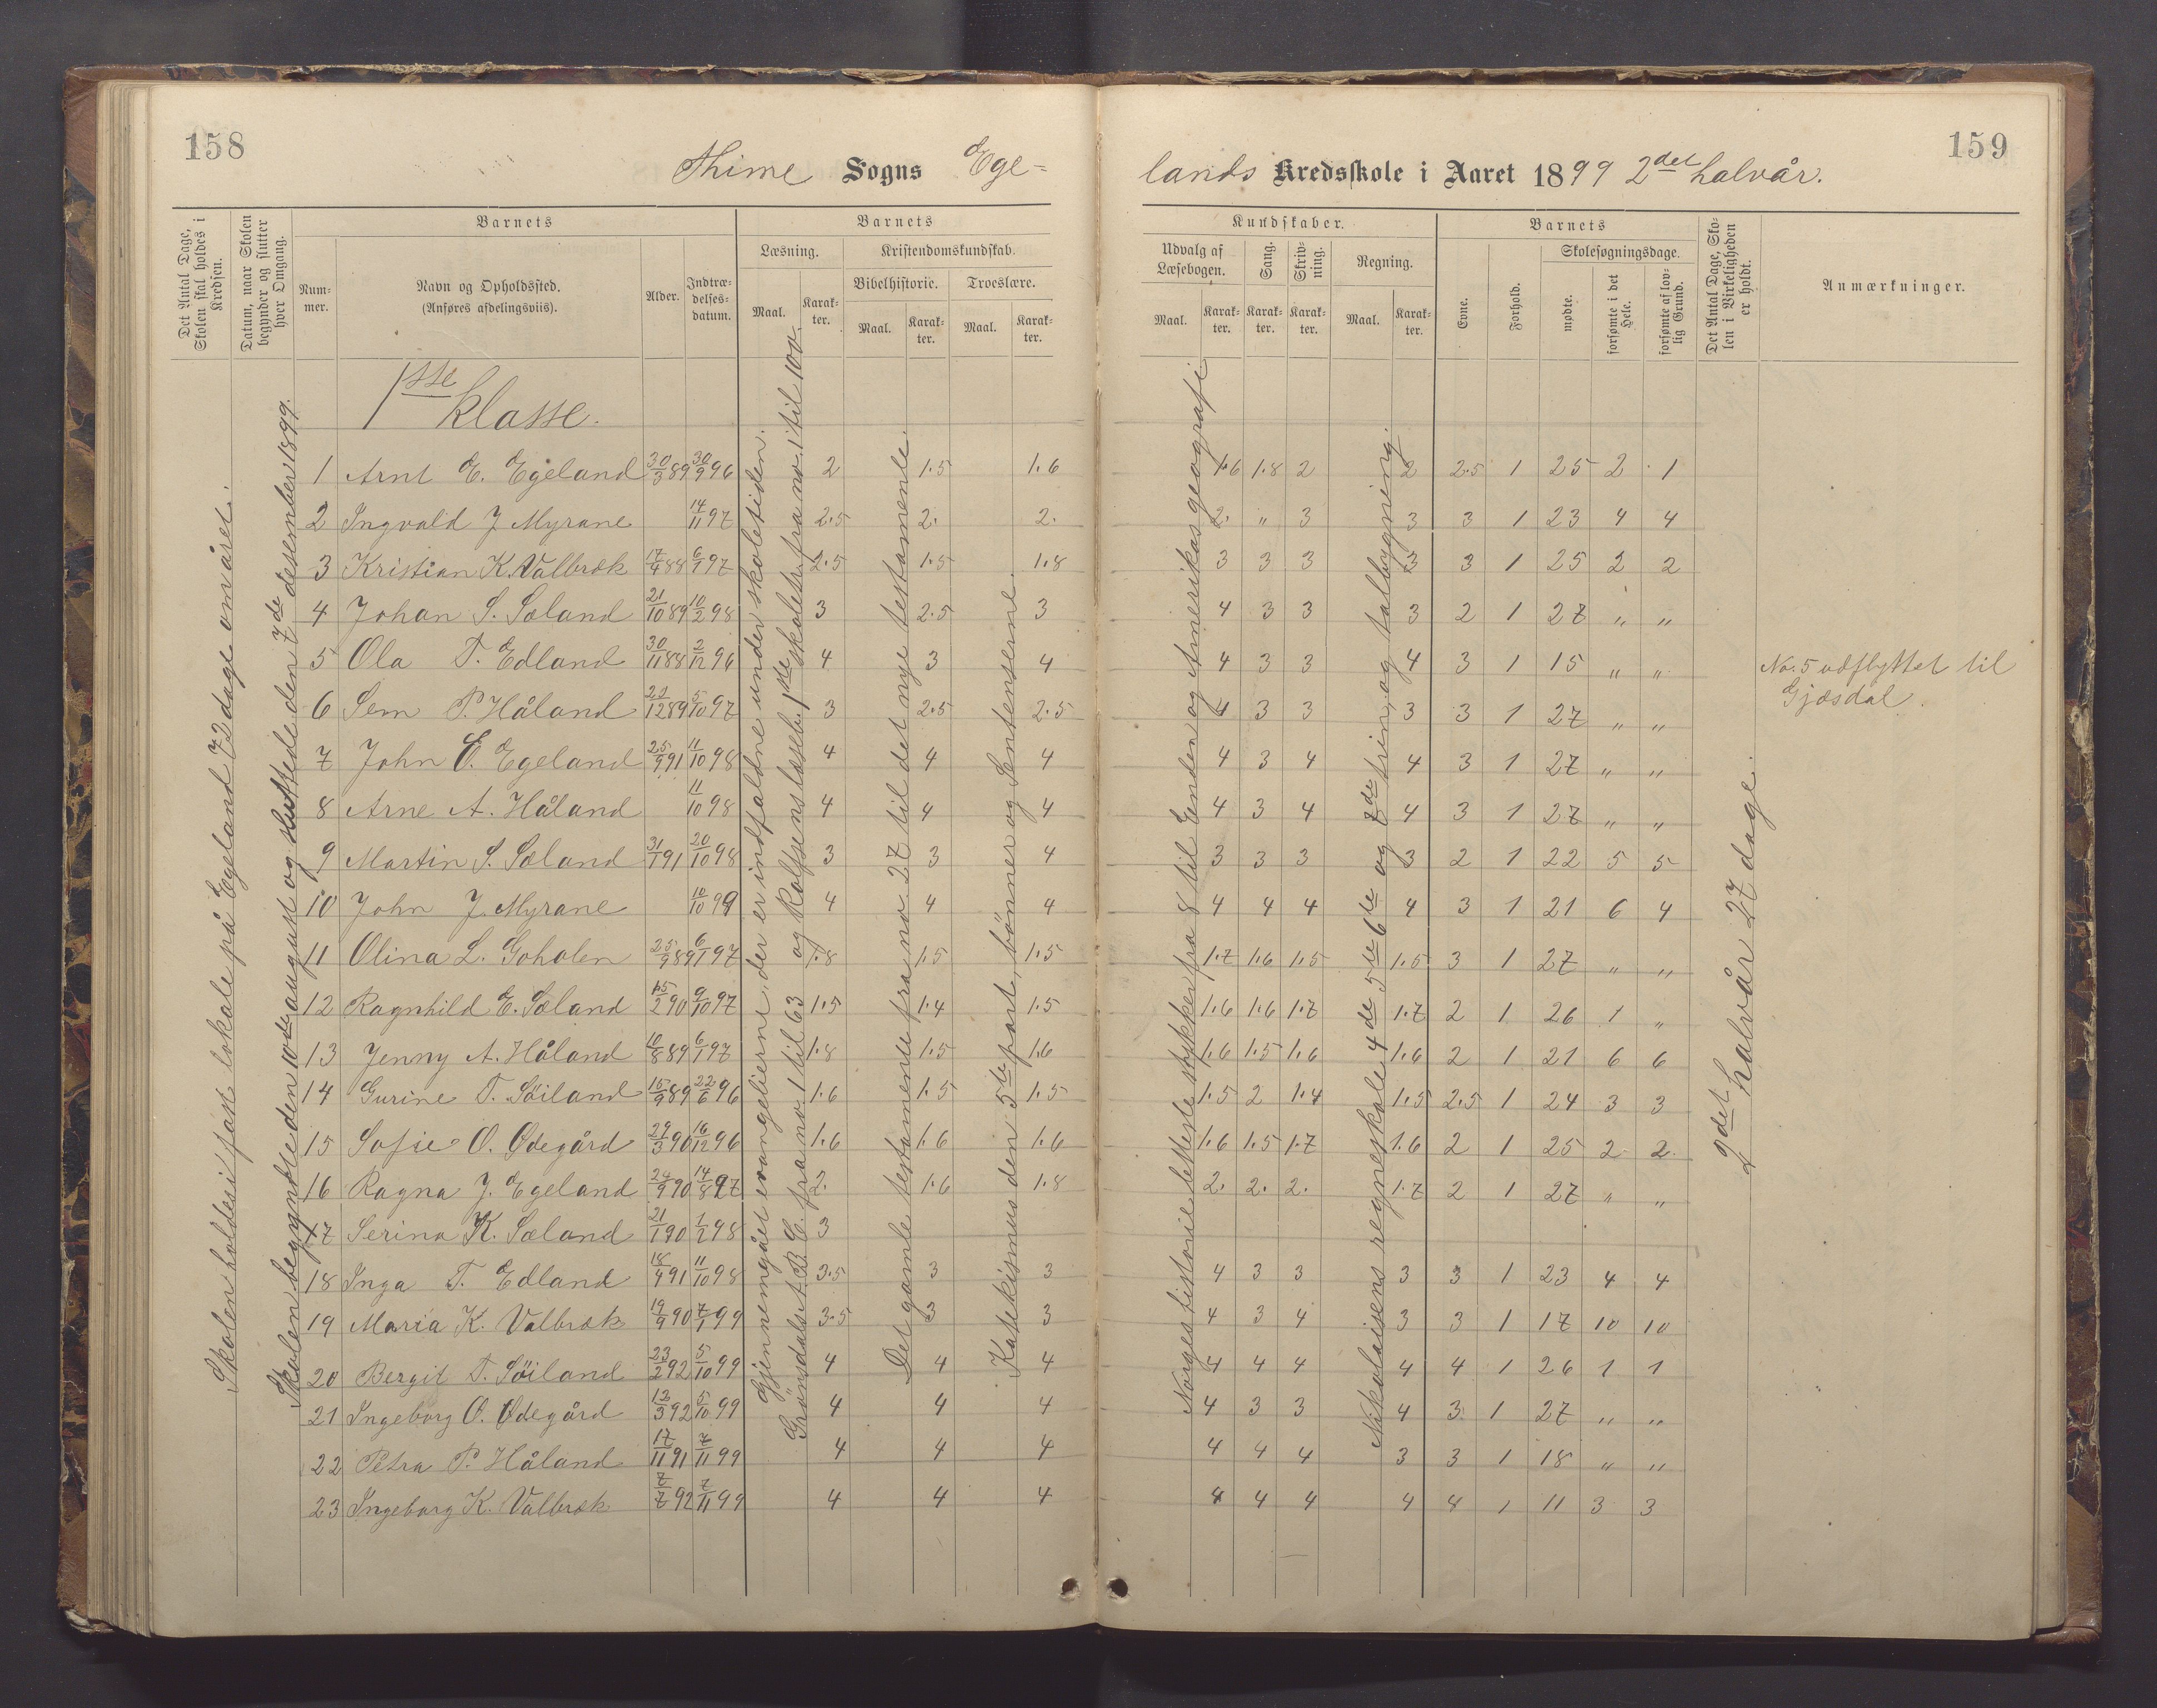 158
Thime Sogns Ege-
lands Kredsskole i Aaret 1899 2det halvår.
159
Det Antal Dage, Skolen skal holdes i Kredsen.
Datum, naar Skolen begynder og slutter hver Omgang.
Barnets
Nummer.
Navn og Opholdssted.
(Anføres afdelingsviis).
Alder.
Indtrædelsesdatum.
Barnets
Læsning.
Maal.
Karakter.
Kristendomskundskab.
Bibelhistorie.
Maal.
Karakter.
Troeslære.
Maal.
Karakter.
Kundskaber.
Udvalg af Læsebogen.
Maal.
Karakter.
Sang.
Karakter.
Skrivning.
Karakter.
Regning.
Maal.
Karakter.
Barnets
Evne.
Forhold.
Skolesøgningsdage.
mødte.
forsømte i det Hele.
forsømte af lovlig Grund.
Det Antal Dage, Skolen i Virkeligheden er holdt.
Anmærkninger.
Skolen holdes i fast lokale på Egeland 72 dage om året.
Skolen begyndte den 10de august og sluttede den 7de desember 1899.
Gjennemgået evangelierne, der er indfaldne under skoletiden.
Grøndals A.B.C. fra no 1 til 63 og Rolfsens læsebog 1ste skolestr. fra no. 1 til 100.
Det gamle testamente fra no 27 til det nye testamente.
Katekismus den 5te part, bønner og Sentenserne.
Norges historie letteste stykker fra 8 til Enden og Amerikas geografi
Nikolaisens regneskole 4de 5te 6te og 7de trin, og talbygning.
2det halvår 27 dage.
1ste klasse.
1 Arnt E. Egeland 30/3 89 30/9 96 2 1.5 1.6 1.6 1.8 2 2 2.5 1 25 2 1
2 Ingvald J Myrane 14/11 97 2.5 2. 2. 2. " 3 3 3 1 23 4 4
3 Kristian K. Valbræk 17/4 88 6/1 97 2.5 1.5 1.8 3 3 3 3 3 1 25 2 2
4 Johan S. Sæland 21/10 89 10/2 98 3 2.5 3 4 3 3 3 2 1 27 " "
5 Ola T. Edland 30/11 88 2/12 96 4 3 4 4 3 3 4 3 1 15 " " No. 5 udflyttet til
Gjæsdal.
6 Sem P. Håland 22/12 89 5/10 97 3 2.5 2.5 4 3 3 3 3 1 27 " "
7 John E. Egeland 25/9 91 11/10 98 4 4 4 4 3 4 4 3 1 27 " "
8 Arne A. Håland 11/10 98 4 4 4 4 3 4 4 3 1 27 " "
9 Martin S. Sæland 31/1 91 20/10 98 3 3 4 3 3 3 3 2 1 22 5 5
10 John J. Myrane 10/10 99 4 4 4 4 4 4 4 3 1 21 6 4
11 Olina L. Goholen 25/9 89 6/1 97 1.8 1.5 1.5 1.7 1.6 1.5 1.5 3 1 27 " "
12 Ragnhild E. Sæland 15/2 90 9/10 97 1.5 1.4 1.5 1.6 1.6 1.7 1.7 2 1 26 1 "
13 Jenny A. Håland 10/8 89 6/1 97 1.8 1.5 1.6 1.6 1.5 1.6 1.6 2 1 21 6 6
14 Gurine T. Söiland 15/9 89 22/6 96 1.6 1.5 1.5 1.5 2 1.4 1.5 2.5 1 24 3 3
15 Sofie O. Ødegård 29/3 90 16/12 96 1.6 1.6 1.6 1.6 1.5 1.7 1.6 2 1 25 2 2
16 Ragna J. Egeland 24/9 90 14/8 97 2. 1.6 1.8 2. 2. 2. 1.7 2 1 27 " "
17 Serina K. Sæland 21/1 90 1/2 98 3
18 Inga T. Edland 18/4 91 11/10 98 3.5 3 3 4 3 3 3 3 1 23 4 4
19 Maria K. Valbræk 19/9 90 7/1 99 3.5 3 3 4 3 4 3 3 1 17 10 10
20 Bergit T. Söiland 23/2 92 5/10 99 4 4 4 4 4 4 4 4 1 26 1 1
21 Ingeborg O. Ødegård 12/3 92 5/10 99 4 4 4 4 3 3 4 3 1 27 " "
22 Petra P. Håland 17/11 91 7/11 99 4 4 4 4 4 4 3 3 1 18 " "
23 Ingeborg K. Valbræk 7/7 92 7/11 99 4 4 4 4 4 4 4 4 1 11 3 3